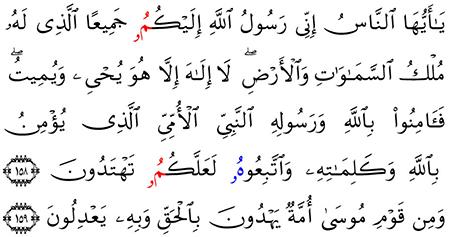 يَـٰٓأَيُّهَا ٱلنَّاسُ إِنِّى رَسُولُ ٱللَّهِ إِلَيْكُمُۥ جَمِيعًا ٱلَّذِى لَهُۥ
مُلْكُ ٱلسَّمَـٰوَٰتِ وَٱلْأَرْضِ ۖ لَا إِلَـٰهَ إِلَّا هُوَ يُحْىِۦ وَيُمِيتُ ۖ
فَـَٔامِنُواْ بِٱللَّهِ وَرَسُولِهِ ٱلنَّبِىِّ ٱلْأُمِّىِّ ٱلَّذِى يُؤْمِنُ
بِٱللَّهِ وَكَلِمَـٰتِهِۦ وَٱتَّبِعُوهُۥ لَعَلَّكُمُۥ تَهْتَدُونَ ١٥٨
وَمِن قَوْمِ مُوسَىٰ أُمَّةٌ يَهْدُونَ بِٱلْحَقِّ وَبِهِۦ يَعْدِلُونَ ١٥٩